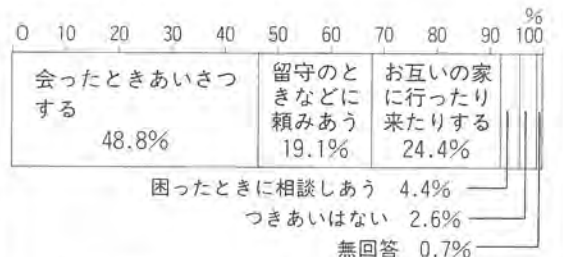 %
0 10 20 30 40 50 60 70 80 90 100
会ったときあいさつ
する
48.8%
留守のと
きなどに
頼みあう
19.1%
お互いの家
に行ったり
来たりする
24.4%
困ったときに相談しあう 4.4%
つきあいはない 2.6%
無回答 0.7%